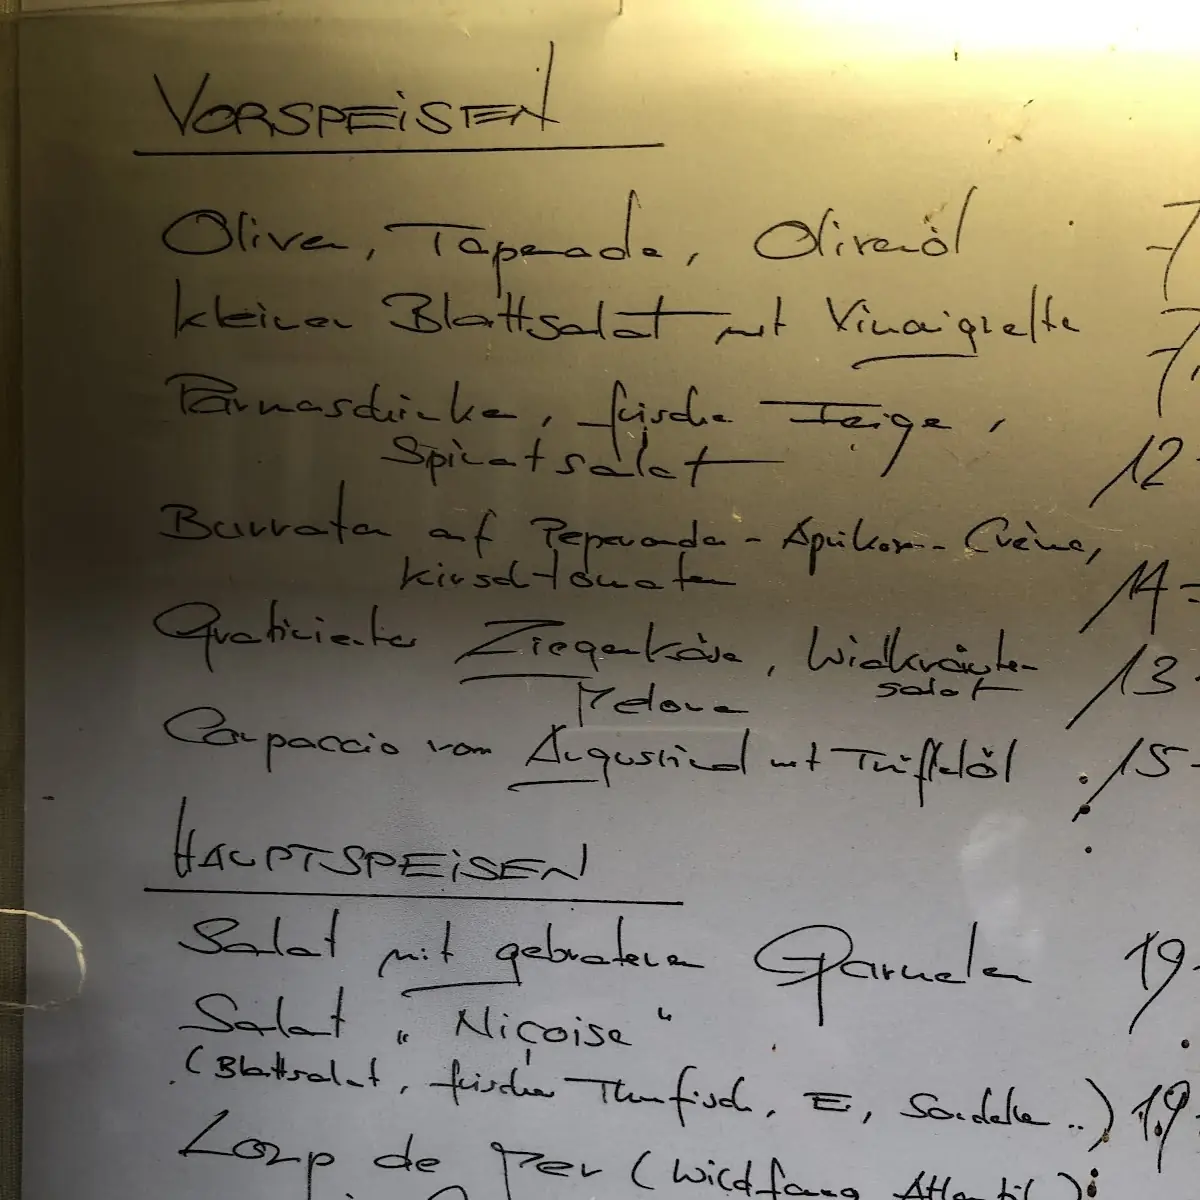 VORSPEISEN
Oliven, Tapenade, Olivenöl 7
kleiner Blattsalat mit Vinaigrette 7
Parmaschinken, frische Feige,
Spinatsalat 12
Burrata auf Peperonda-Aprikosen-Crème,
Kirschtomaten 14
Gratinierter Ziegenkäse, Wildkräuter-
salat 13
Melone
Carpaccio vom Angusrind mit Trüffelöl 15
HAUPTSPEISEN
Salat mit gebratenen Garnelen 19
Salat "Niçoise"
(Blattsalat, frischer Thunfisch, Ei, Sardelle..) 19
Loup de Mer (Wildfang Atlantik)